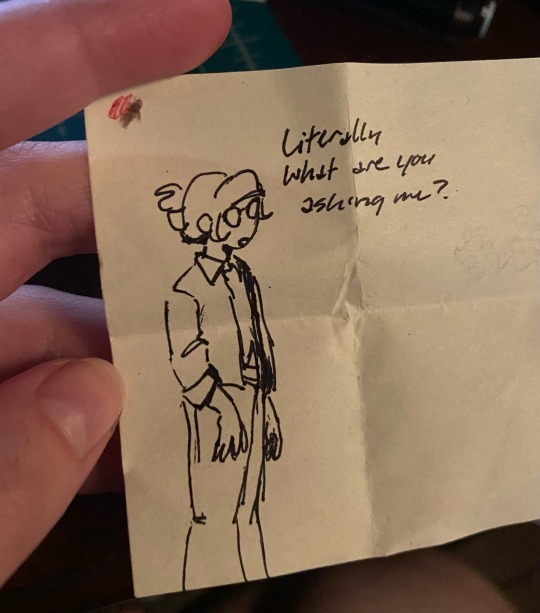 Literally
what are you
asking me?